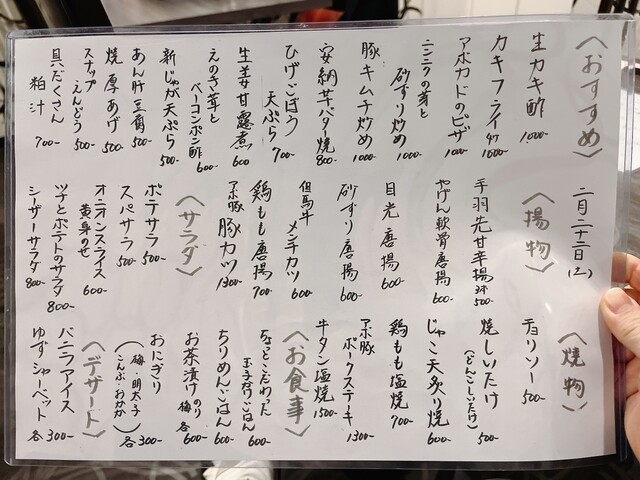 〈おすすめ〉
生カキ酢 1000-
カキフライ 4ケ 1000-
アボカドのピザ 1000-
ニンニクの芽と
砂ずり炒め 1000-
豚キムチ炒め 1000-
安納芋バター焼 800-
ひげごぼう
天ぷら 700-
生姜甘露煮 600
えのき茸と
ベーコンポン酢 600
新じゃが天ぷら 500-
あん肝豆腐 500-
焼厚あげ 500-
スナップ
えんどう 500-
具だくさん
粕汁 700-
二月二十二日(土)
〈揚物〉
手羽先甘辛揚 3本 500-
やげん軟骨唐揚 600-
目光唐揚 600-
砂ずり唐揚 600-
但馬牛
メンチカツ 600-
鶏もも唐揚 700-
アボ豚 豚カツ 1300-
〈サラダ〉
ポテサラ 500-
スパサラ 500-
オニオンスライス
黄身のせ 600-
ツナとポテトのサラダ 800-
シーザーサラダ 800-
〈焼物〉
チョリソー 500-
焼しいたけ
(どんこしいたけ) 500-
じゃこ天炙り焼 600-
鶏もも塩焼 700-
アボ豚
ポークステーキ 1300-
牛タン塩焼 1500-
〈お食事〉
ちょっとこだわった
玉子かけごはん 600-
ちりめんごはん 600-
お茶漬け のり 梅 各600-
おにぎり
(梅・明太子
こんぶ・おかか) 各300-
〈デザート〉
バニラアイス 300-
ゆずシャーベット 各